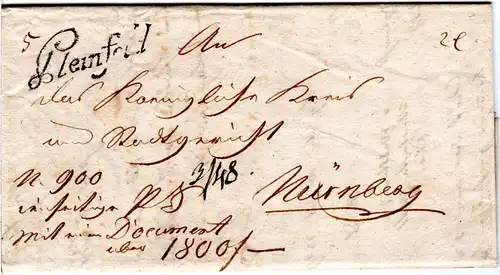 5 Pleinfeld An 2 C
das Koenigliche Kreis
und Stadtgericht
N. 900 3/48
Nürnberg
mit ein Document
über 1800 f